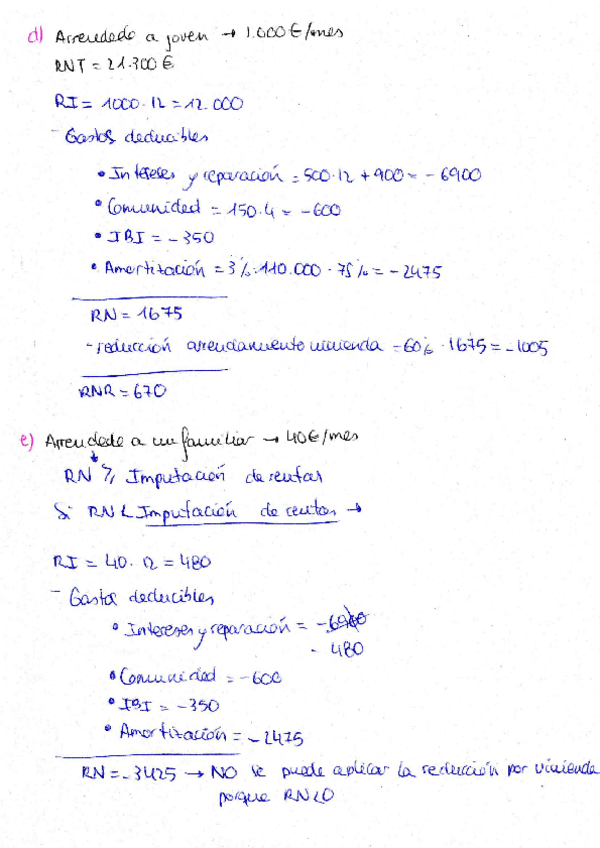 d) Arrendado a joven → 1.000€/mes
RNT = 21.300 €
RI = 1000 · 12 = 12.000
- Gastos deducibles
• Intereses y reparación = 500·12 + 900 = - 6900
• Comunidad = 150.4 = -600
• IBI = -350
• Amortización = 3%·110.000 · 75% = -2475
RN = 1675
-reducción arrendamiento vivienda = 60% · 1675 = -1005
RNR = 670
e) Arrendado a un familiar → 40€/mes
RN ≥ Imputación de rentas
Si RN < Imputación de rentas →
RI = 40 · 12 = 480
- Gastos deducibles
• Intereses y reparación = -6900
- 480
• Comunidad = -600
• IBI = -350
• Amortización = -2475
RN = -3425 → NO se puede aplicar la reducción por vivienda
porque RN<0